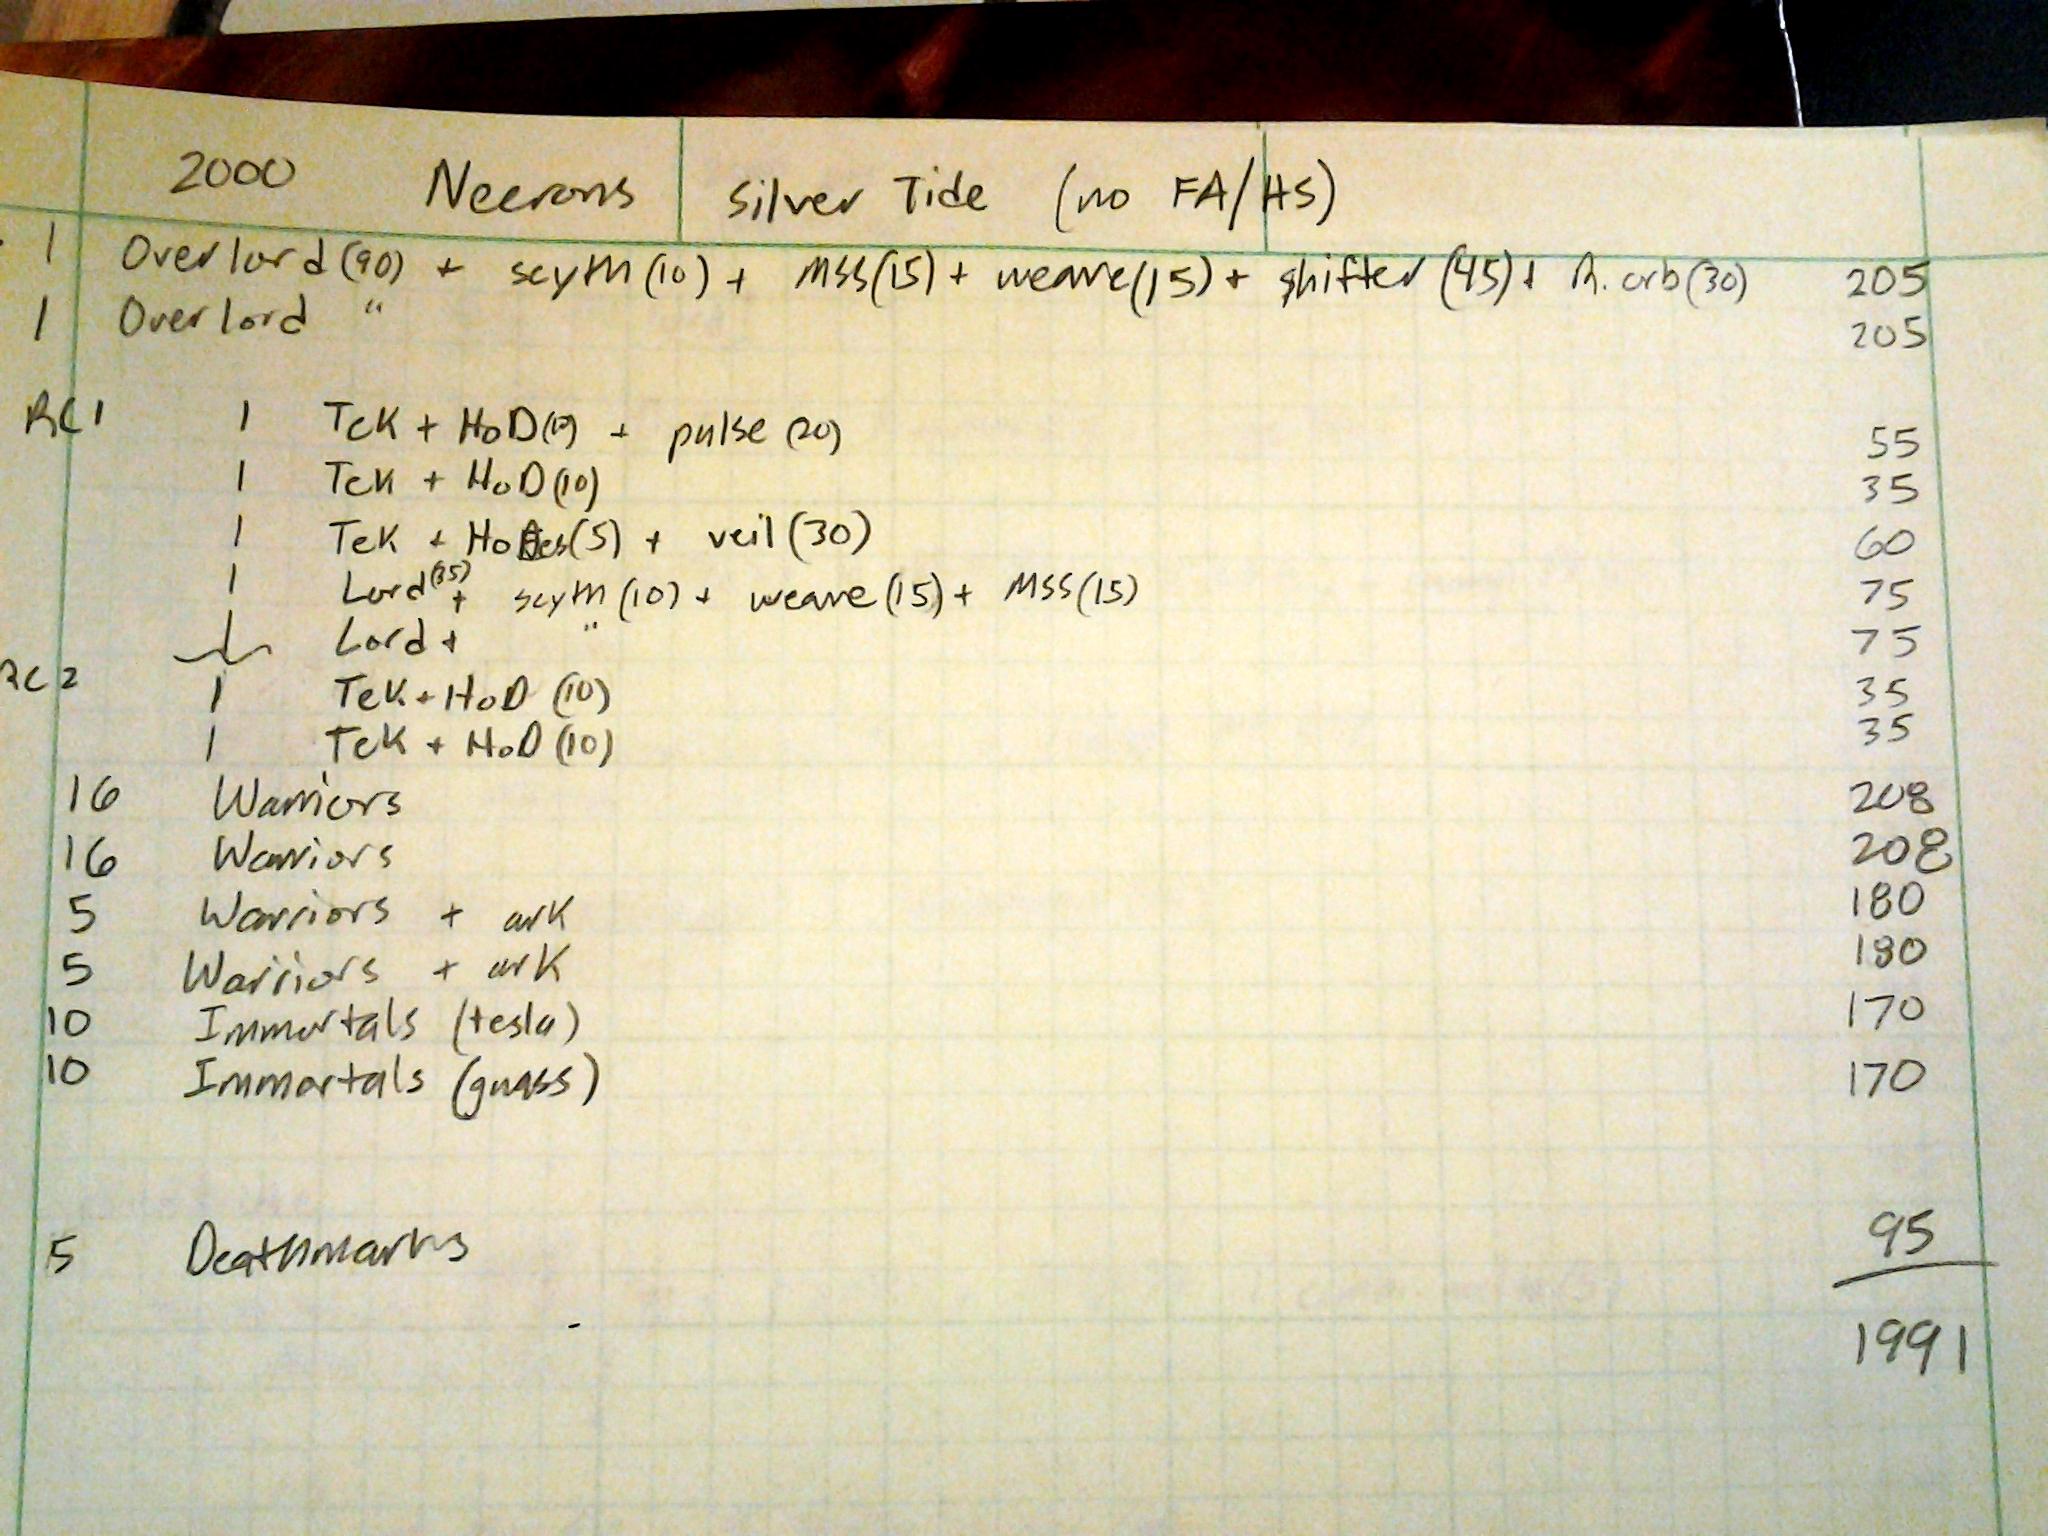 2000 Necrons Silver Tide (no FA/HS)
1 Overlord (90) + scyth (10) + MSS (15) + weave (15) + shifter (45) + R. orb (30) 205
1 Overlord " 205
RC1 1 TeK + HoD (10) + pulse (20) 55
1 TeK + HoD (10) 35
1 TeK + HoDes (5) + veil (30) 60
1 Lord (35) + scyth (10) + weave (15) + MSS (15) 75
1 Lord + " 75
RC2 1 TeK + HoD (10) 35
1 TeK + HoD (10) 35
16 Warriors 208
16 Warriors 208
5 Warriors + ark 180
5 Warriors + ark 180
10 Immortals (tesla) 170
10 Immortals (guass) 170
5 Deathmarks 95
1991